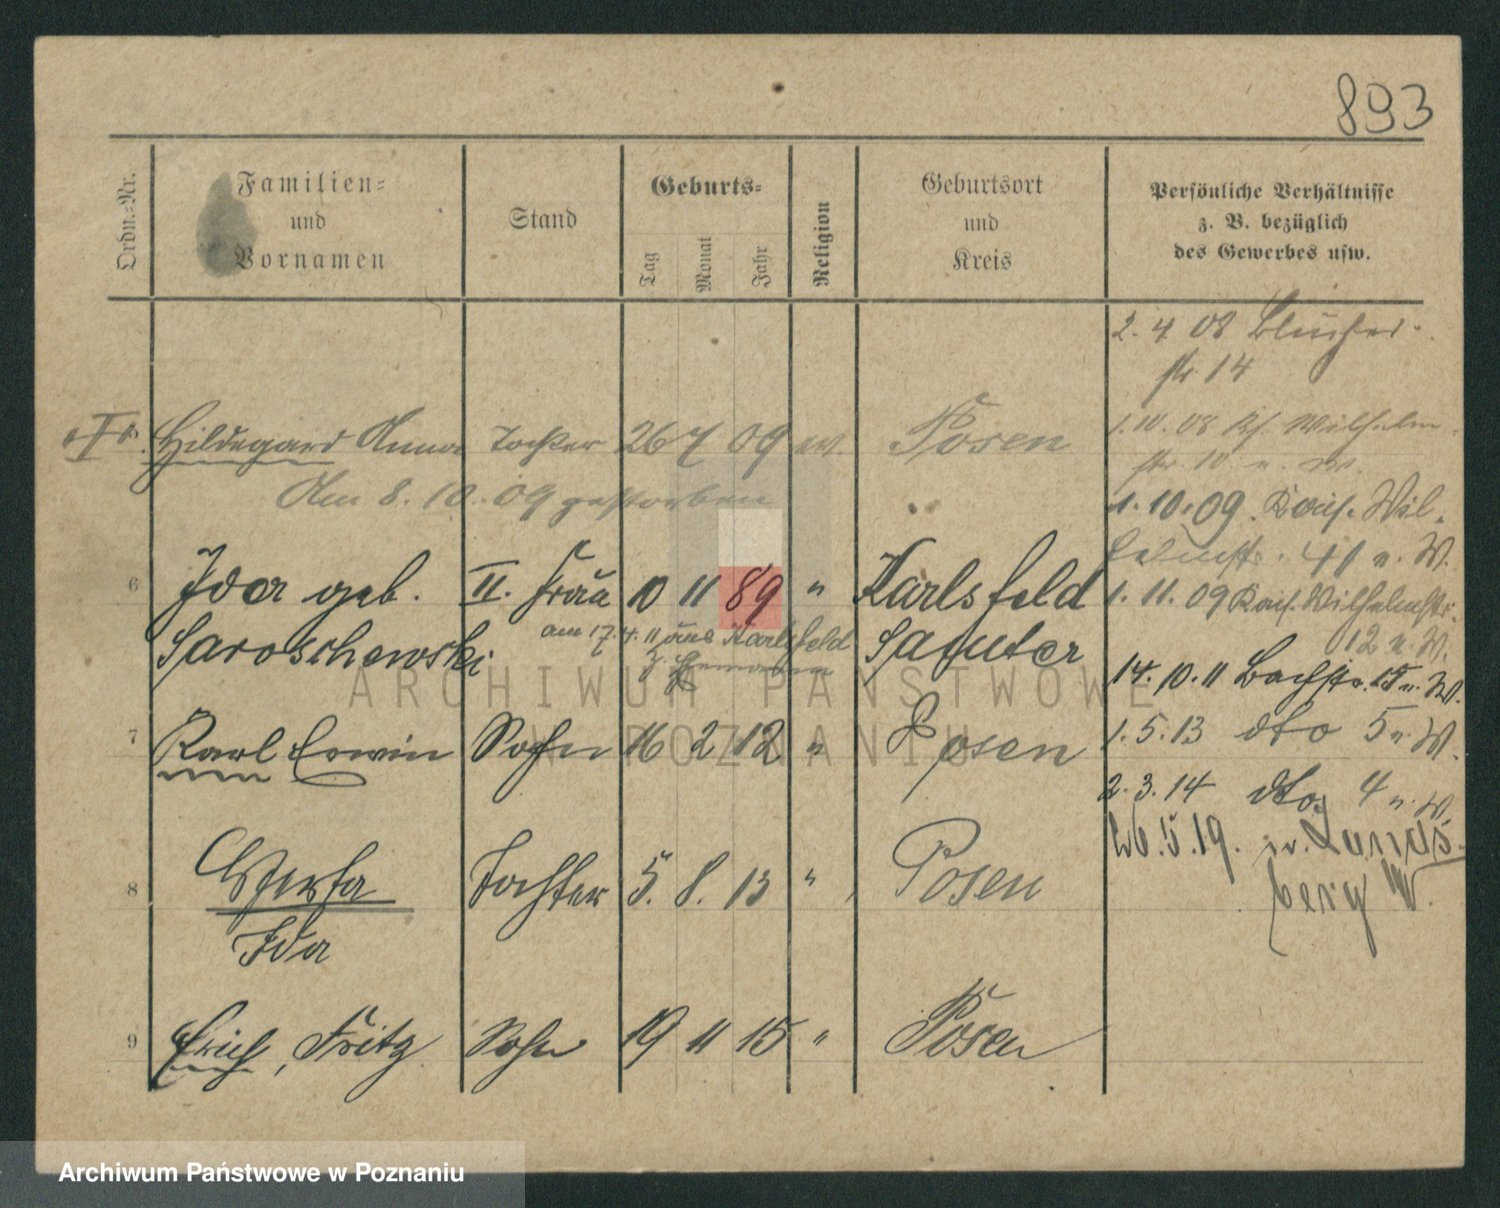 893
Ordn.-Nr.
Familien-
und
Vornamen
Stand
Geburts-
Tag
Monat
Jahr
Religion
Geburtsort
und
Kreis
Persönliche Verhältnisse
z. B. bezüglich
des Gewerbes usw.
2. 4 08 Blücher
str. 14
Hildegard Anna Tochter 26 7 09 w. Posen
1.10.08 Wilhelm
str. 10 u. W.
Am 8. 10. 09 gestorben
1. 10. 09. Kais. Wil-
helmstr. 41 u. W.
6 Ida geb. II. Frau 10 11 89 " Karlsfeld
1. 11. 09 Kais. Wilhelmstr.
12 u. W.
am 17.4.11 aus Karlsfeld
Saroschewski Samter
14. 10. 11 Bachstr. 15 u. W.
7 Karl Erwin Sohn 16 2 12 " Posen
1. 5. 13 dto 5 u. W.
2. 3. 14 dto. 4 u. W.
26. 5. 19. Lands-
berg W.
8 Herta Tochter 5. 8. 13 " Posen
Ida
9 Erich, Fritz Sohn 19 11 15 " Posen
ARCHIWUM PAŃSTWOWE
W POZNANIU
Archiwum Państwowe w Poznaniu